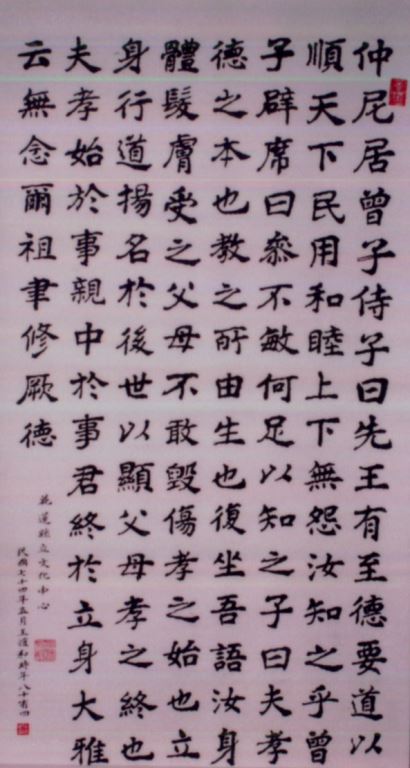 仲尼居曾子侍子曰先王有至德要道以
順天下民用和睦上下無怨汝知之乎曾
子辟席曰參不敏何足以知之子曰夫孝
德之本也教之所由生也復坐吾語汝身
體髮膚受之父母不敢毀傷孝之始也立
身行道揚名於後世以顯父母孝之終也
夫孝始於事親中於事君終於立身大雅
云無念爾祖聿修厥德
花蓮縣立文化中心
民國七十四年五月王和時年八十有四